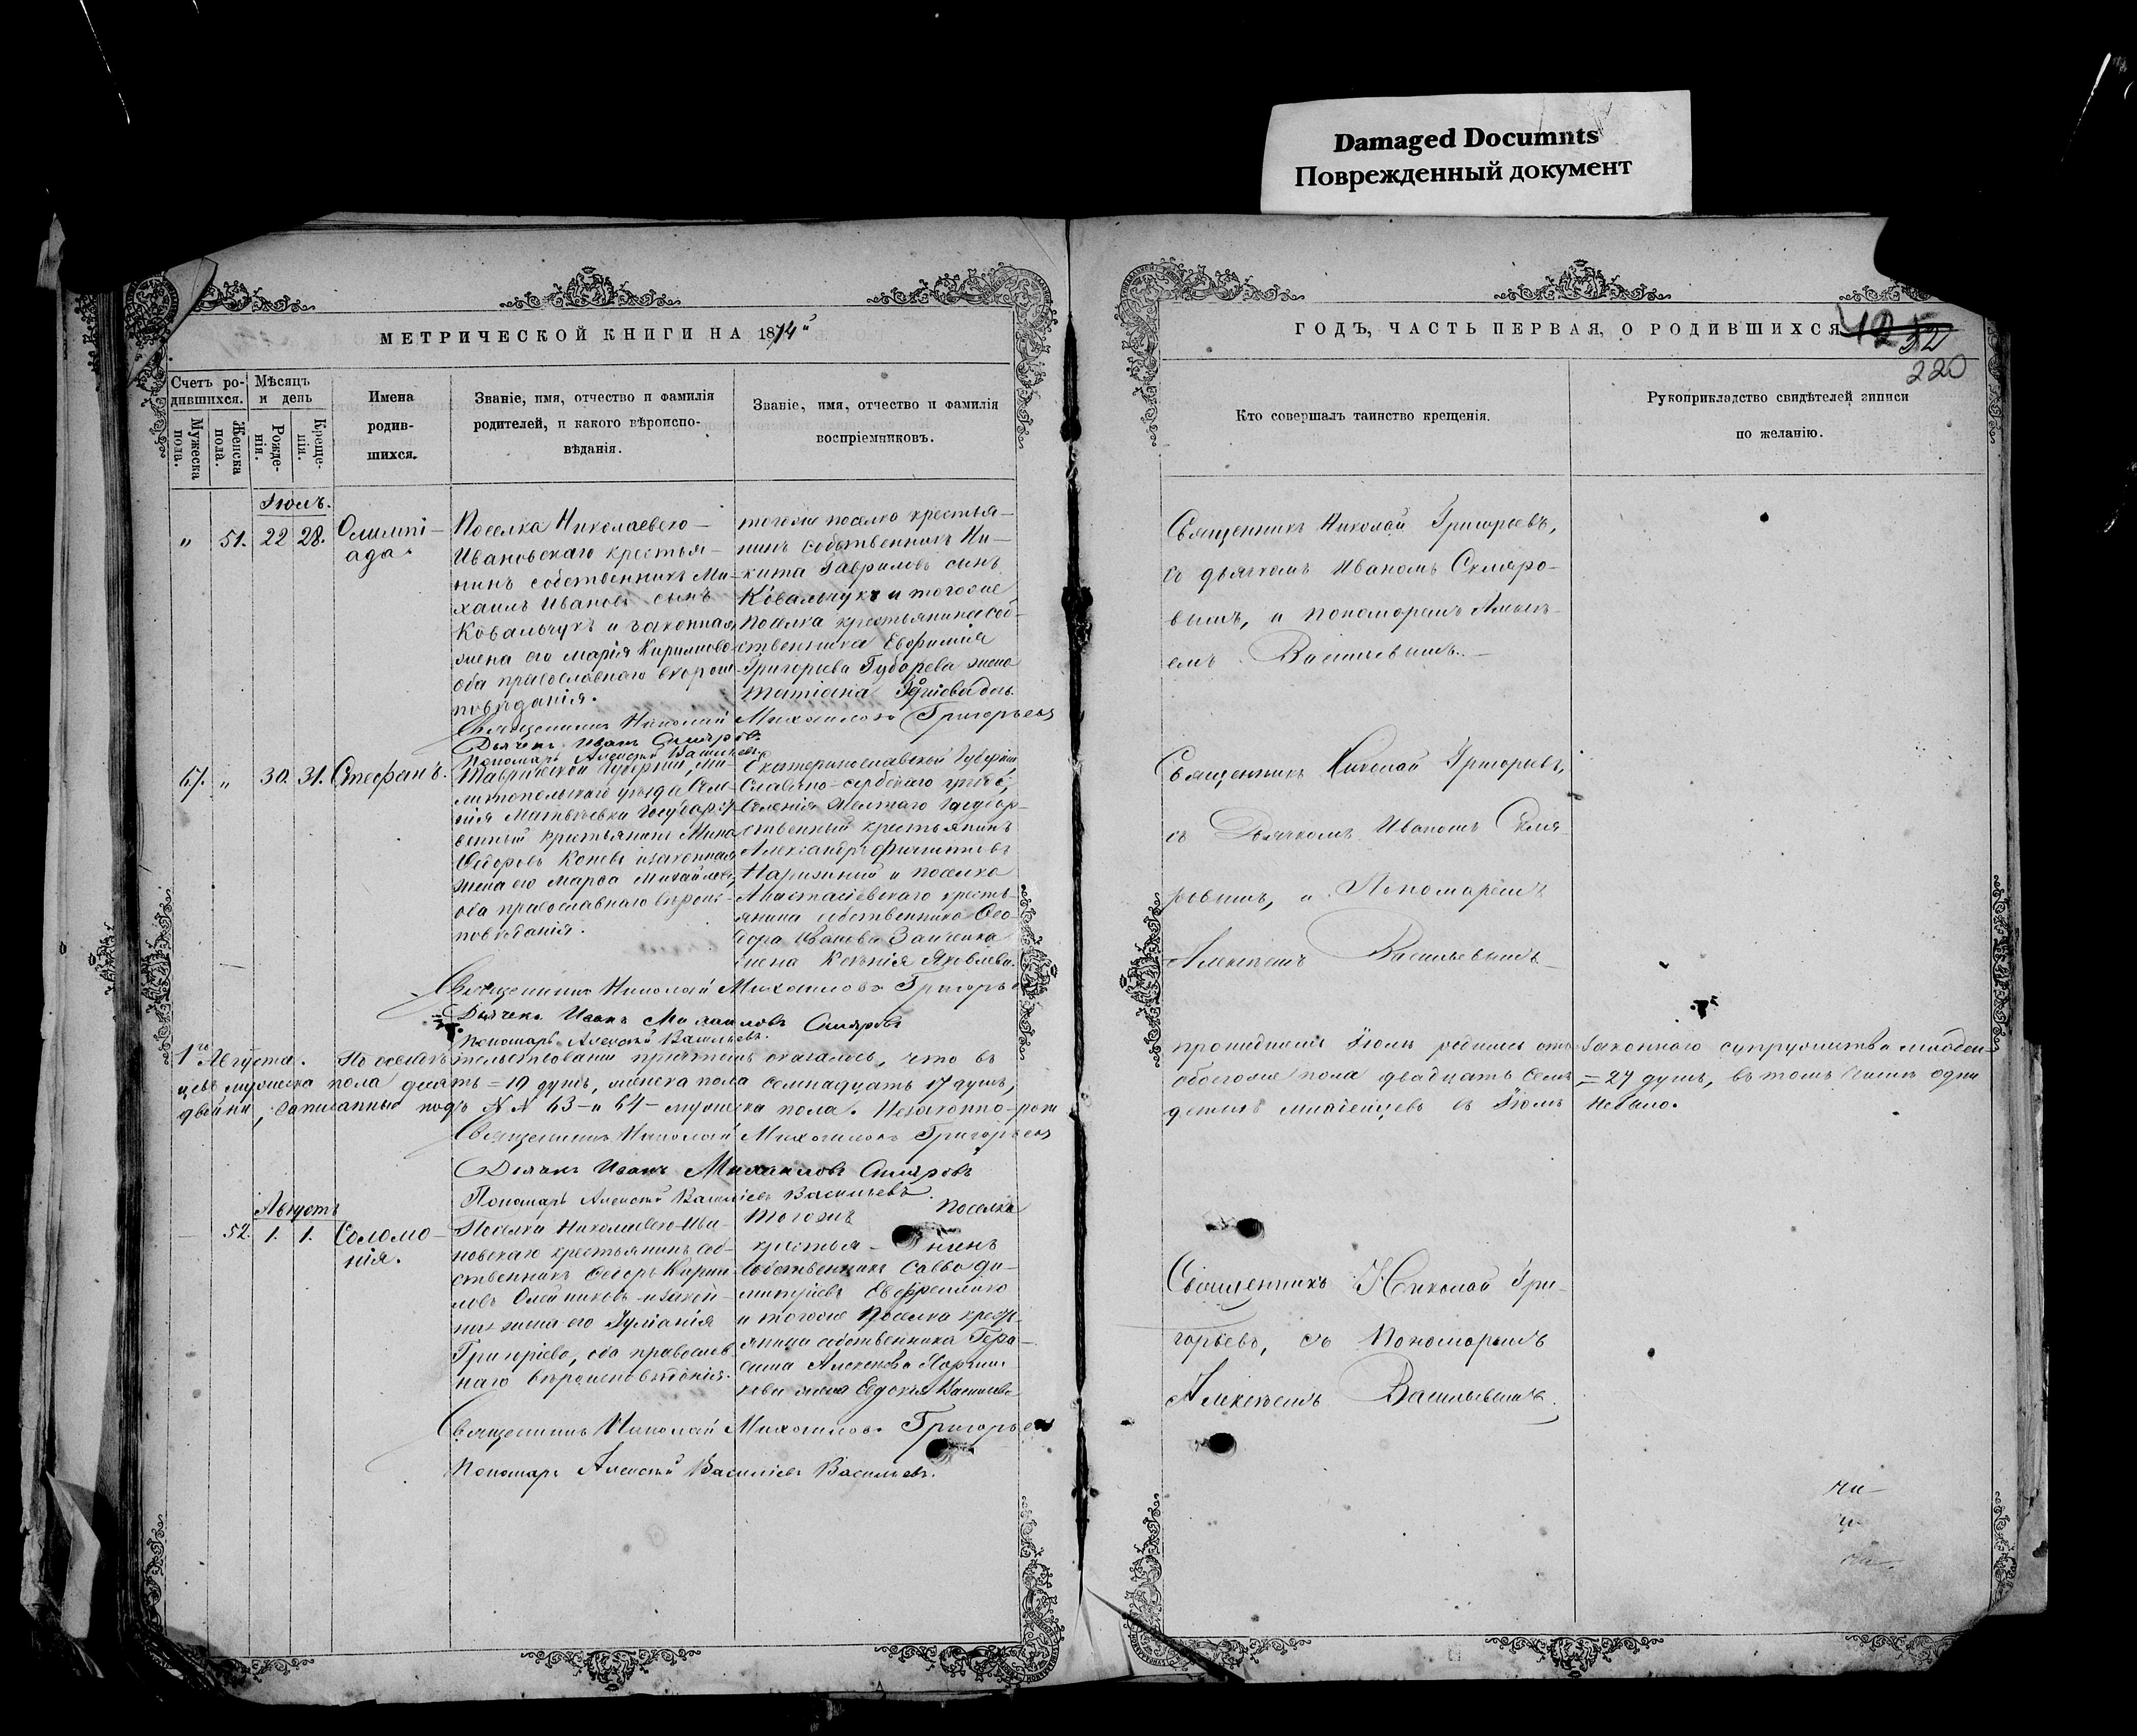 Damaged Documnts
Поврежденный документ
МЕТРИЧЕСКОЙ КНИГИ НА 1874й
Счетъ ро-
дившихся.
Мужеска
пола.
Женска
пола.
Мѣсяцъ
и день
Рожде-
нія.
Креще-
нія.
Имена
родив-
шихся.
Званіе, имя, отчество и фамилія
родителей, и какого вѣроиспо-
вѣданія.
Званіе, имя, отчество и фамилія
воспріемниковъ.
Іюль.
" 51. 22 28.
Олимпі-
ада.
Поселка Николаевско-
Ивановскаго крестья-
нинъ собственникъ Ми-
хаилъ Ивановъ сынъ
Ковальчукъ и законная
жена его Марія Кирилова
оба православнаго вѣроис-
повѣданія.
тогоже поселка крестья-
нинъ собственникъ Ни-
кита Гавриловъ сынъ
Ковальчукъ и тогоже
поселка крестьянина соб-
ственника Евфимія
Григорьева Губарева жена
Татіана
Священникъ Николай Михаиловъ Григорьевъ
Дьячекъ Иванъ Скляровъ
Пономарь Алексѣй Васильевъ
67. " 30. 31.
Стефанъ.
Таврической Губерніи, Ме-
литопольскаго уѣзда Селе-
нія Матвѣевки Государст-
венный крестьянинъ Мина
Ѳедоровъ Коневъ и законная
жена его Марѳа Михайлова,
оба православнаго вѣроис-
повѣданія.
Екатеринославской Губерніи,
Славяно-сербскаго уѣзда,
Селенія Желтаго Государ-
ственный крестьянинъ
Александръ
Нарижній и поселка
Анастасіевскаго кресть-
янина собственника Ѳео-
дора Иванова Заиченка
жена Ксенія Яковлева.
Священникъ Николай Михаиловъ Григорьевъ
Дьячекъ Иванъ Михаиловъ Скляровъ
Пономарь Алексѣй Васильевъ.
1го Августа. По освидѣтельствованіи причтомъ оказалось, что въ
цевъ мужеска пола десять = 10 душъ, женска пола семнадцать 17 душъ,
двойни, записанные подъ № № 63-и 64- мужеска пола. Незаконно-рож
Священникъ Николай Михаиловъ Григорьевъ
Дьячекъ Иванъ Михаиловъ Скляровъ
Пономарь Алексѣй Васильевъ Васильевъ.
Августъ
52. 1. 1.
Соломо-
нія.
Поселка Николаевско-Ива-
новскаго крестьянинъ соб-
ственникъ Ѳедоръ Кирил-
ловъ Олейниковъ и закон-
ная жена его Іуліанія
Григоріева, оба православ-
наго вѣроисповѣданія.
тогожъ поселка
крестья-нинъ
собственникъ Савва Ди-
митріевъ Евфремленко
и тогоже поселка крест-
янина собственника Гера-
сима Алексѣева
жена Евдокія Василева
Священникъ Николай Михаиловъ Григорьевъ
Пономарь Алексѣй Васильевъ Васильевъ.
ГОДЪ, ЧАСТЬ ПЕРВАЯ, О РОДИВШИХСЯ
52
220
Кто совершалъ таинство крещенія.
Рукоприкладство свидѣтелей записи
по желанію.
Священникъ Николай Григорьевъ,
съ дьячкомъ Иваномъ Скляро-
вымъ, и пономаремъ Алексѣ-
емъ Васильевымъ.-
Священникъ Николай Григорьевъ,
съ Дьячкомъ Иваномъ Скля-
ровымъ, и Пономаремъ
Алексѣемъ Васильевымъ
прошедшемъ Іюлѣ родилось отъ законнаго супружества младен-
обоегоже пола двадцать семь = 27 душъ, въ томъ числѣ одни
денныхъ младенцевъ въ Іюлѣ небыло.
Священникъ Николай Гри-
горьевъ, съ Пономаремъ
Алексѣемъ Васильевымъ.